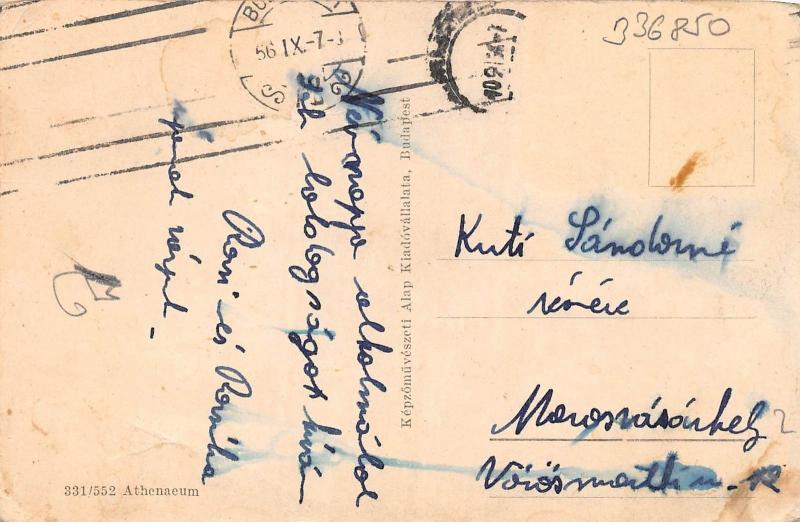 336850
BU
56 IX.-7-
Névnapja alkalmából
sok boldogságot kíván
Rozi és
répet
Képzőművészeti Alap Kiadóvállalata, Budapest
Kuti Sándorné
Marosvásárhely
Vörösmarthi u. 12
331/552 Athenaeum